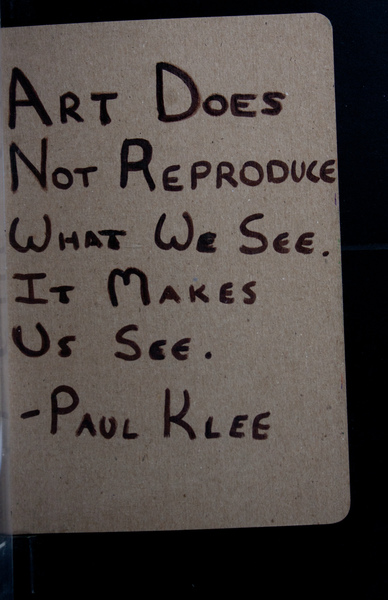 Art Does
Not Reproduce
What We See.
It Makes
Us See.
-Paul Klee